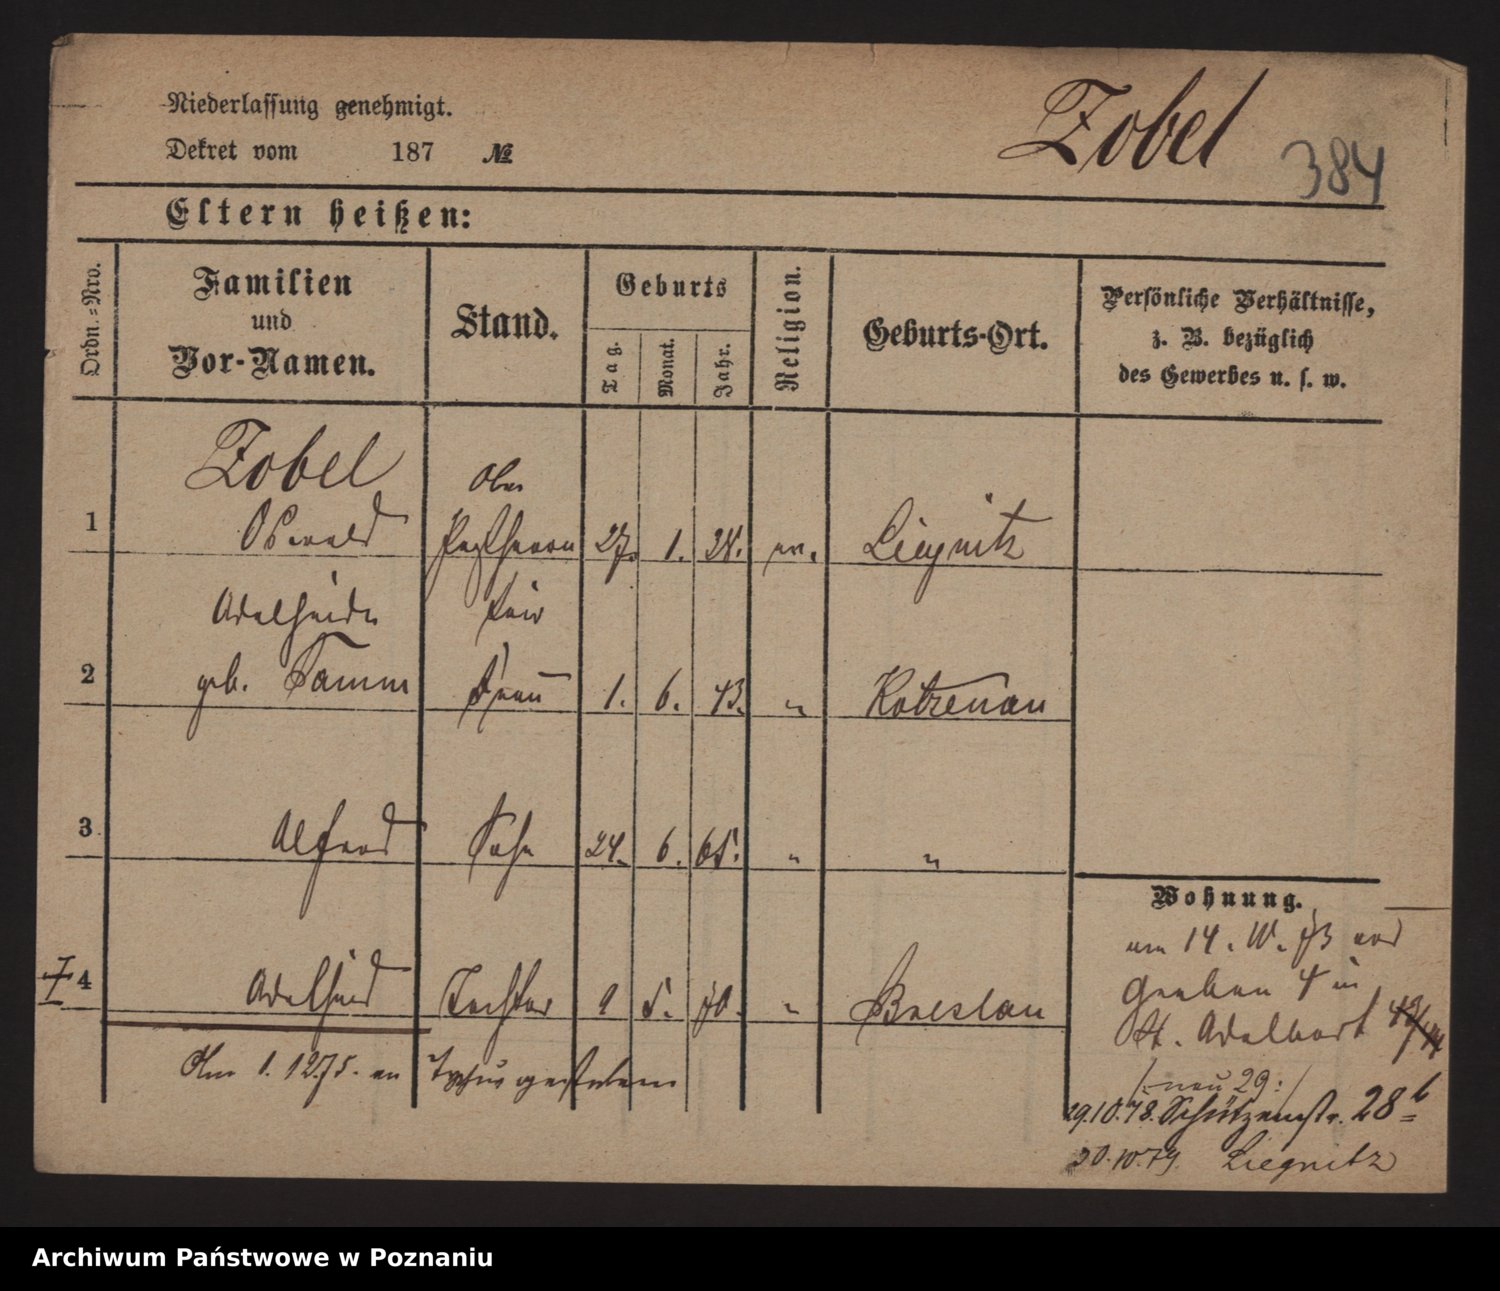 Niederlassung genehmigt.
Zobel
384
Dekret vom 187 №
Eltern heißen:
Ordn.-Nro.
Familien und Vor-Namen.
Stand.
Geburts
Tag.
Monat.
Jahr.
Religion.
Geburts-Ort.
Persönliche Verhältnisse,
z. B. bezüglich
des Gewerbes u. s. w.
Zobel Ober
1 Oswald 27. 1. ev. Liegnitz
Adelheide
2 geb. Tamm Frau 1. 6. 43. " Kotzenau
3 Alfred Sohn 24. 6. 65. " "
Wohnung.
14. 73
4 Adelheid Tochter 9 5. 70. " Breslau
Graben 4 in
St. Adelbert
Am 1. 12 75. an Typhus gestorben
/: neu 29 :/
29.10.78. Schützenstr. 28 b
Liegnitz
Archiwum Państwowe w Poznaniu